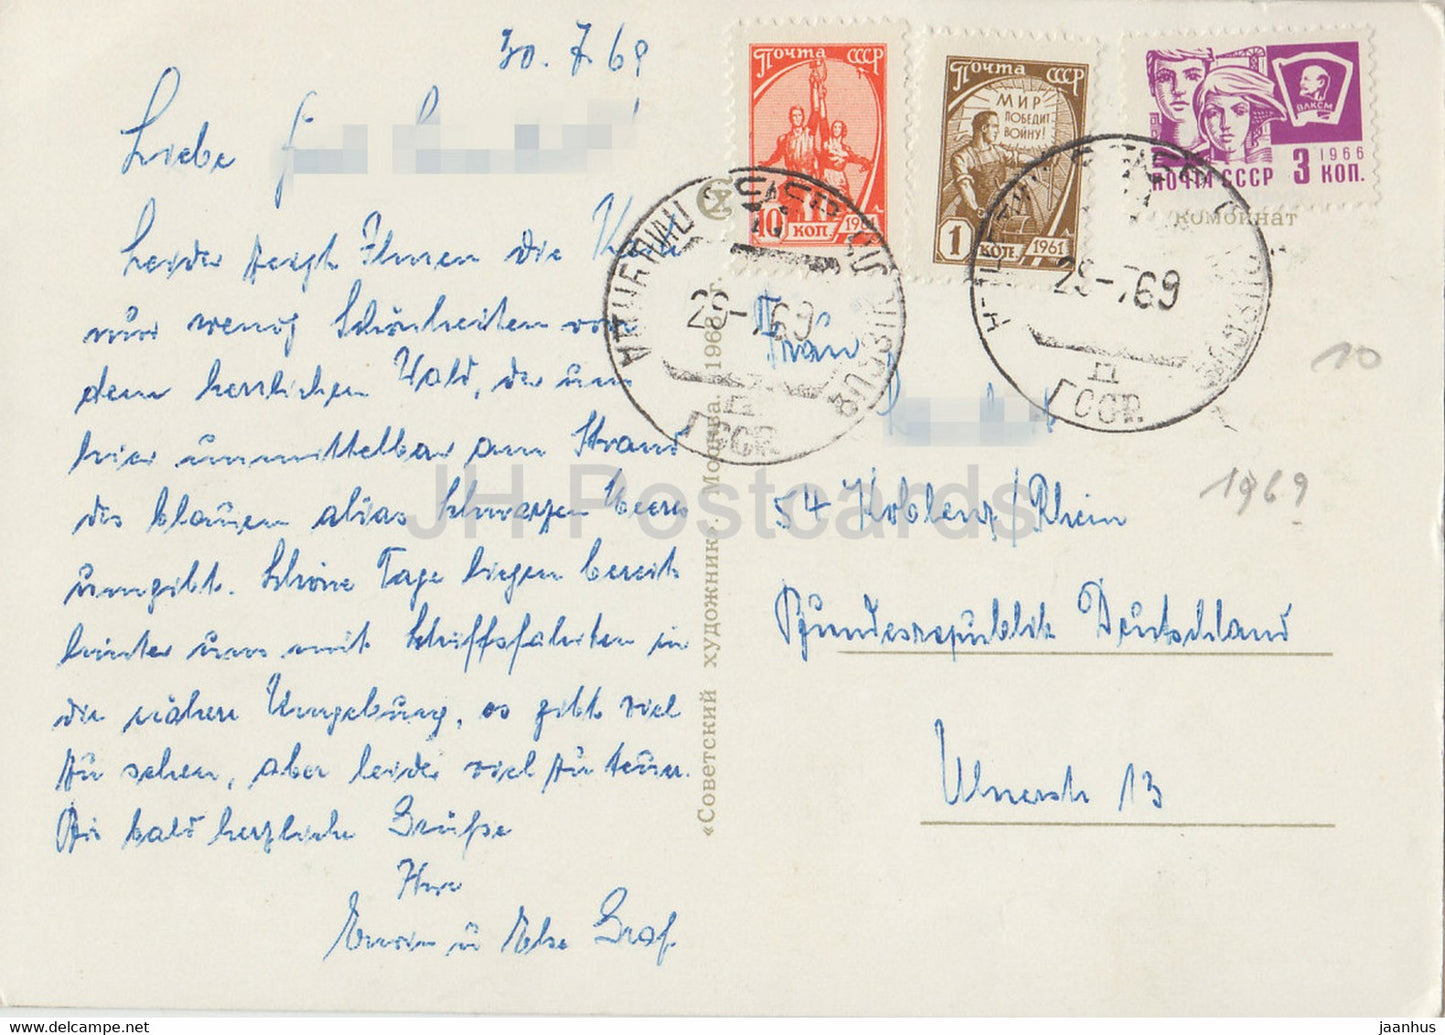 30.7.69
Liebe
Leider zeigt Ihnen die Karte
nur wenig Schönheiten von
dem herrlichen Wald, der uns
hier unmittelbar am Strand
des blauen alias Schwarzen Meeres
umgibt. Schöne Tage liegen bereits
hinter uns mit Schiffsfahrten in
die nähere Umgebung, es gibt viel
zu sehen, aber leider viel zu teuer.
Bis bald herzliche Grüße
Ihre
Erwin u Else Graf
«Советский художник». Москва. 1968 г.
ПОЧТА СССР
10 КОП 1961
ПОЧТА СССР
МИР
ПОБЕДИТ
ВОЙНУ!
1 КОП. 1961
ВЛКСМ
1966
ПОЧТА СССР 3 КОП.
комбинат
ПИЦУНДА
ГССР.
ГССР.
Frau
54 Koblenz/Rhein
Bundesrepublik Deutschland
13
10
1969
JH Postcards
jaanhus @ delcampe.net